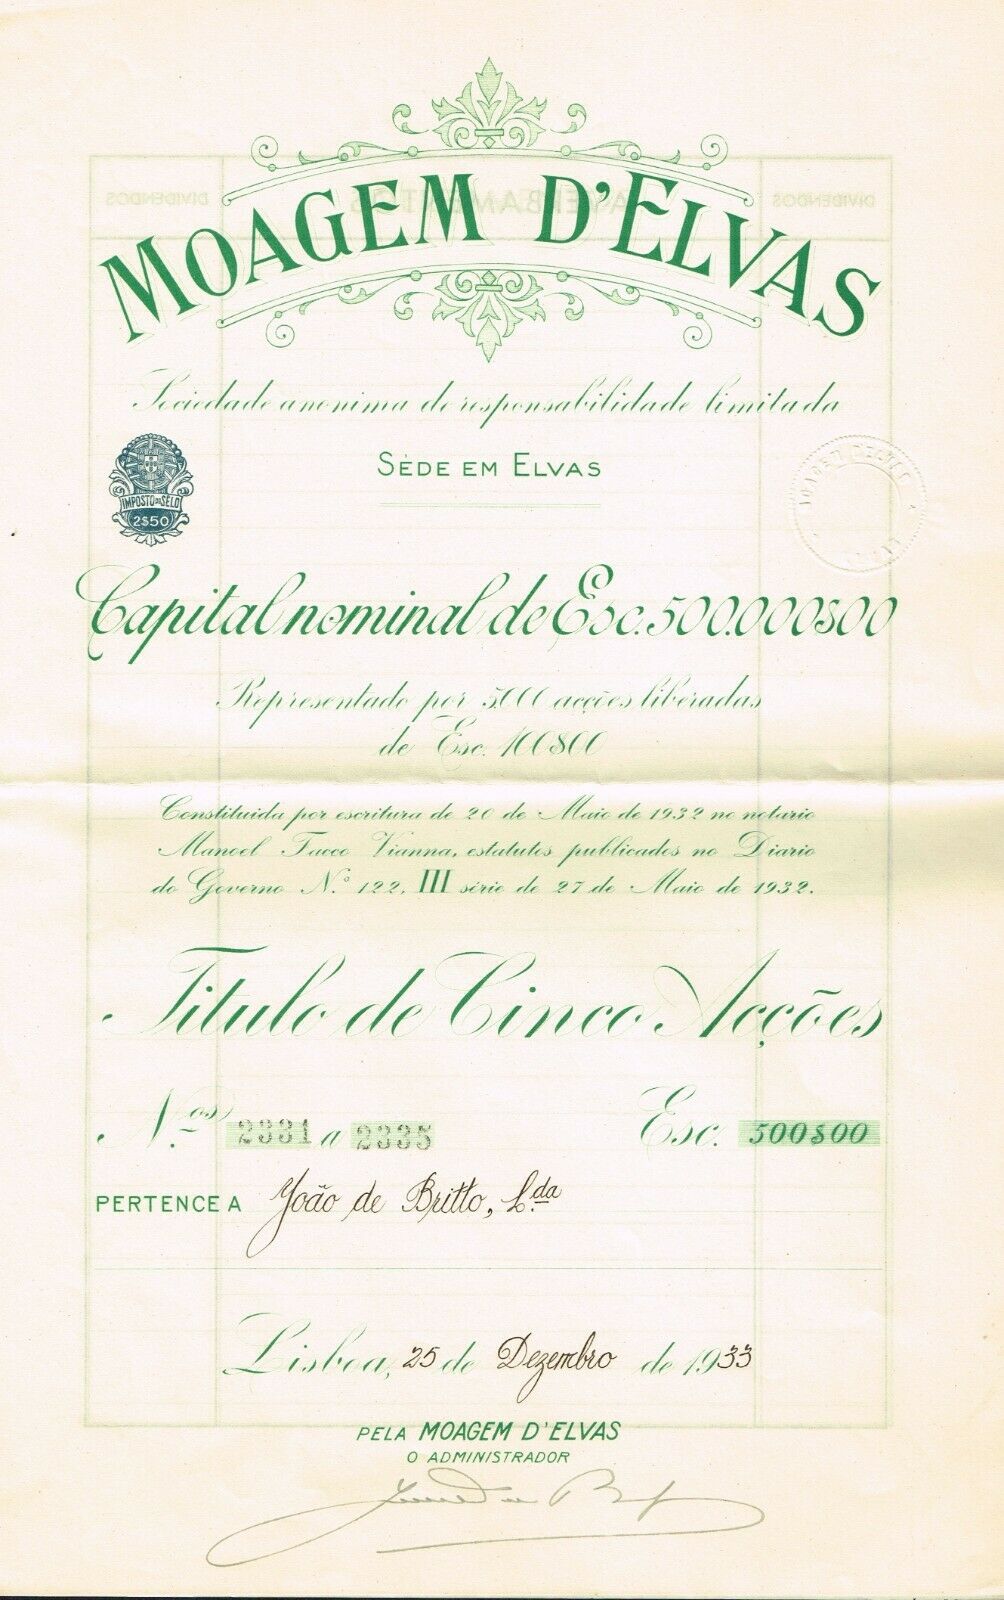 MOAGEM D'ELVAS
Sociedade anonima de responsabilidade limitada
SÉDE EM ELVAS
IMPOSTO DO SELO
2$50
MOAGEM D'ELVAS
Capital nominal de Esc. 500.000$00
Representado por 5.000 acções liberadas
de Esc. 100$00
Constituida por escritura de 20 de Maio de 1932 no notario
Manoel Facco Vianna, estatutos publicados no Diario
do Governo N.º 122, III série de 27 de Maio de 1932.
Titulo de Cinco Acções
N.os 2331 a 2335 Esc. 500$00
PERTENCE A João de Britto, L.da
Lisboa, 25 de Dezembro de 1933
PELA MOAGEM D'ELVAS
O ADMINISTRADOR